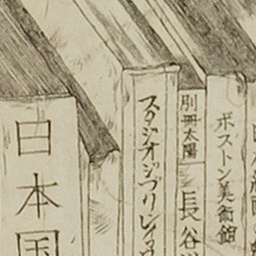 日本国
スタジオジブリレイアウ
別冊太陽
長谷川
ボストン美術館